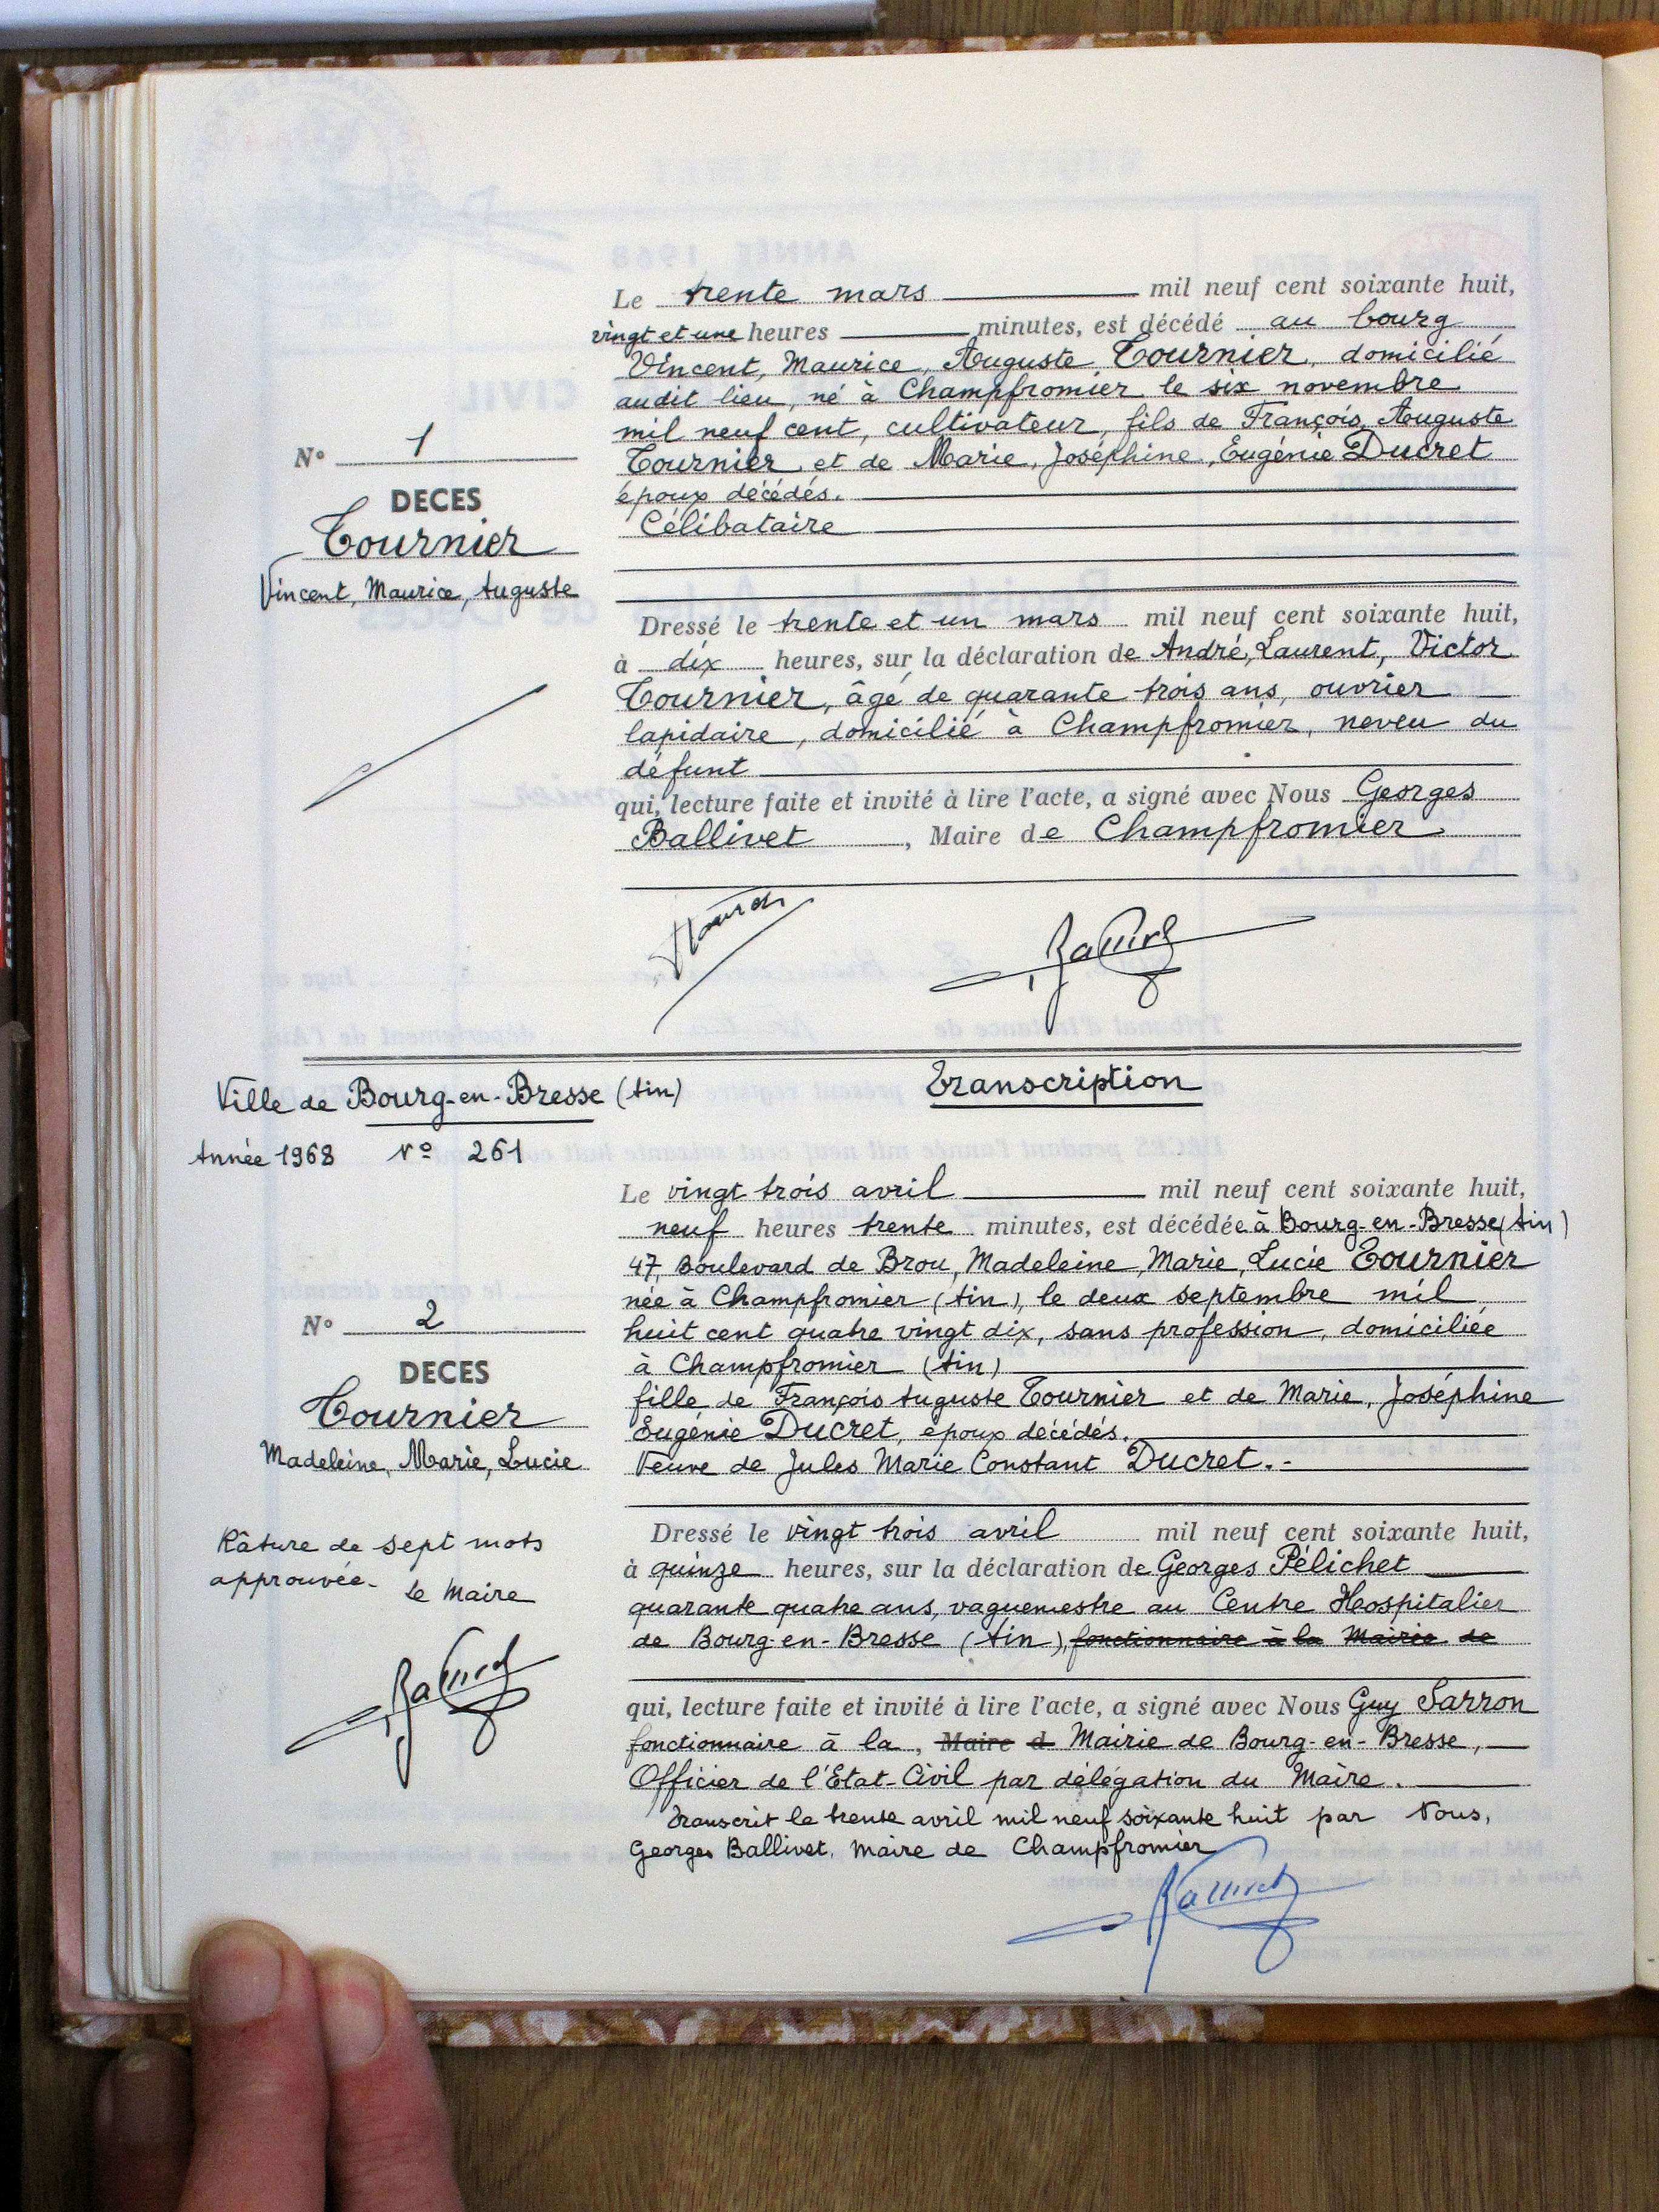 Le trente mars mil neuf cent soixante huit,
vingt et une heures minutes, est décédé au bourg
Vincent, Maurice, Auguste Tournier, domicilié
audit lieu, né à Champfromier le six novembre
mil neuf cent, cultivateur, fils de François, Auguste
Tournier et de Marie, Joséphine, Eugénie Ducret
époux décédés.
Célibataire
N° 1
DECES
Tournier
Vincent, Maurice, Auguste
Dressé le trente et un mars mil neuf cent soixante huit,
à dix heures, sur la déclaration de André, Laurent, Victor
Tournier, âgé de quarante trois ans, ouvrier
lapidaire, domicilié à Champfromier, neveu du
défunt
qui, lecture faite et invité à lire l'acte, a signé avec Nous Georges
Ballivet, Maire de Champfromier
Ballivet
Ville de Bourg-en-Bresse (Ain)
Transcription
Année 1968 N° 261
Le vingt trois avril mil neuf cent soixante huit,
neuf heures trente minutes, est décédée à Bourg-en-Bresse (Ain)
47, Boulevard de Brou, Madeleine, Marie, Lucie Tournier
née à Champfromier (Ain), le deux septembre mil
huit cent quatre vingt dix, sans profession, domiciliée
à Champfromier (Ain)
fille de François Auguste Tournier et de Marie, Joséphine
Eugénie Ducret, époux décédés.
Veuve de Jules Marie Constant Ducret.-
N° 2
DECES
Tournier
Madeleine, Marie, Lucie
Râture de sept mots
approuvée. Le Maire
Ballivet
Dressé le vingt trois avril mil neuf cent soixante huit,
à quinze heures, sur la déclaration de Georges Pélichet
quarante quatre ans, vaguemestre au Centre Hospitalier
de Bourg-en-Bresse (Ain), fonctionnaire à la Mairie de
qui, lecture faite et invité à lire l'acte, a signé avec Nous Guy Sarron
fonctionnaire à la, Maire d Mairie de Bourg-en-Bresse,
Officier de l'Etat-Civil par délégation du Maire.
Transcrit le trente avril mil neuf soixante huit par Nous,
Georges Ballivet, Maire de Champfromier
Ballivet